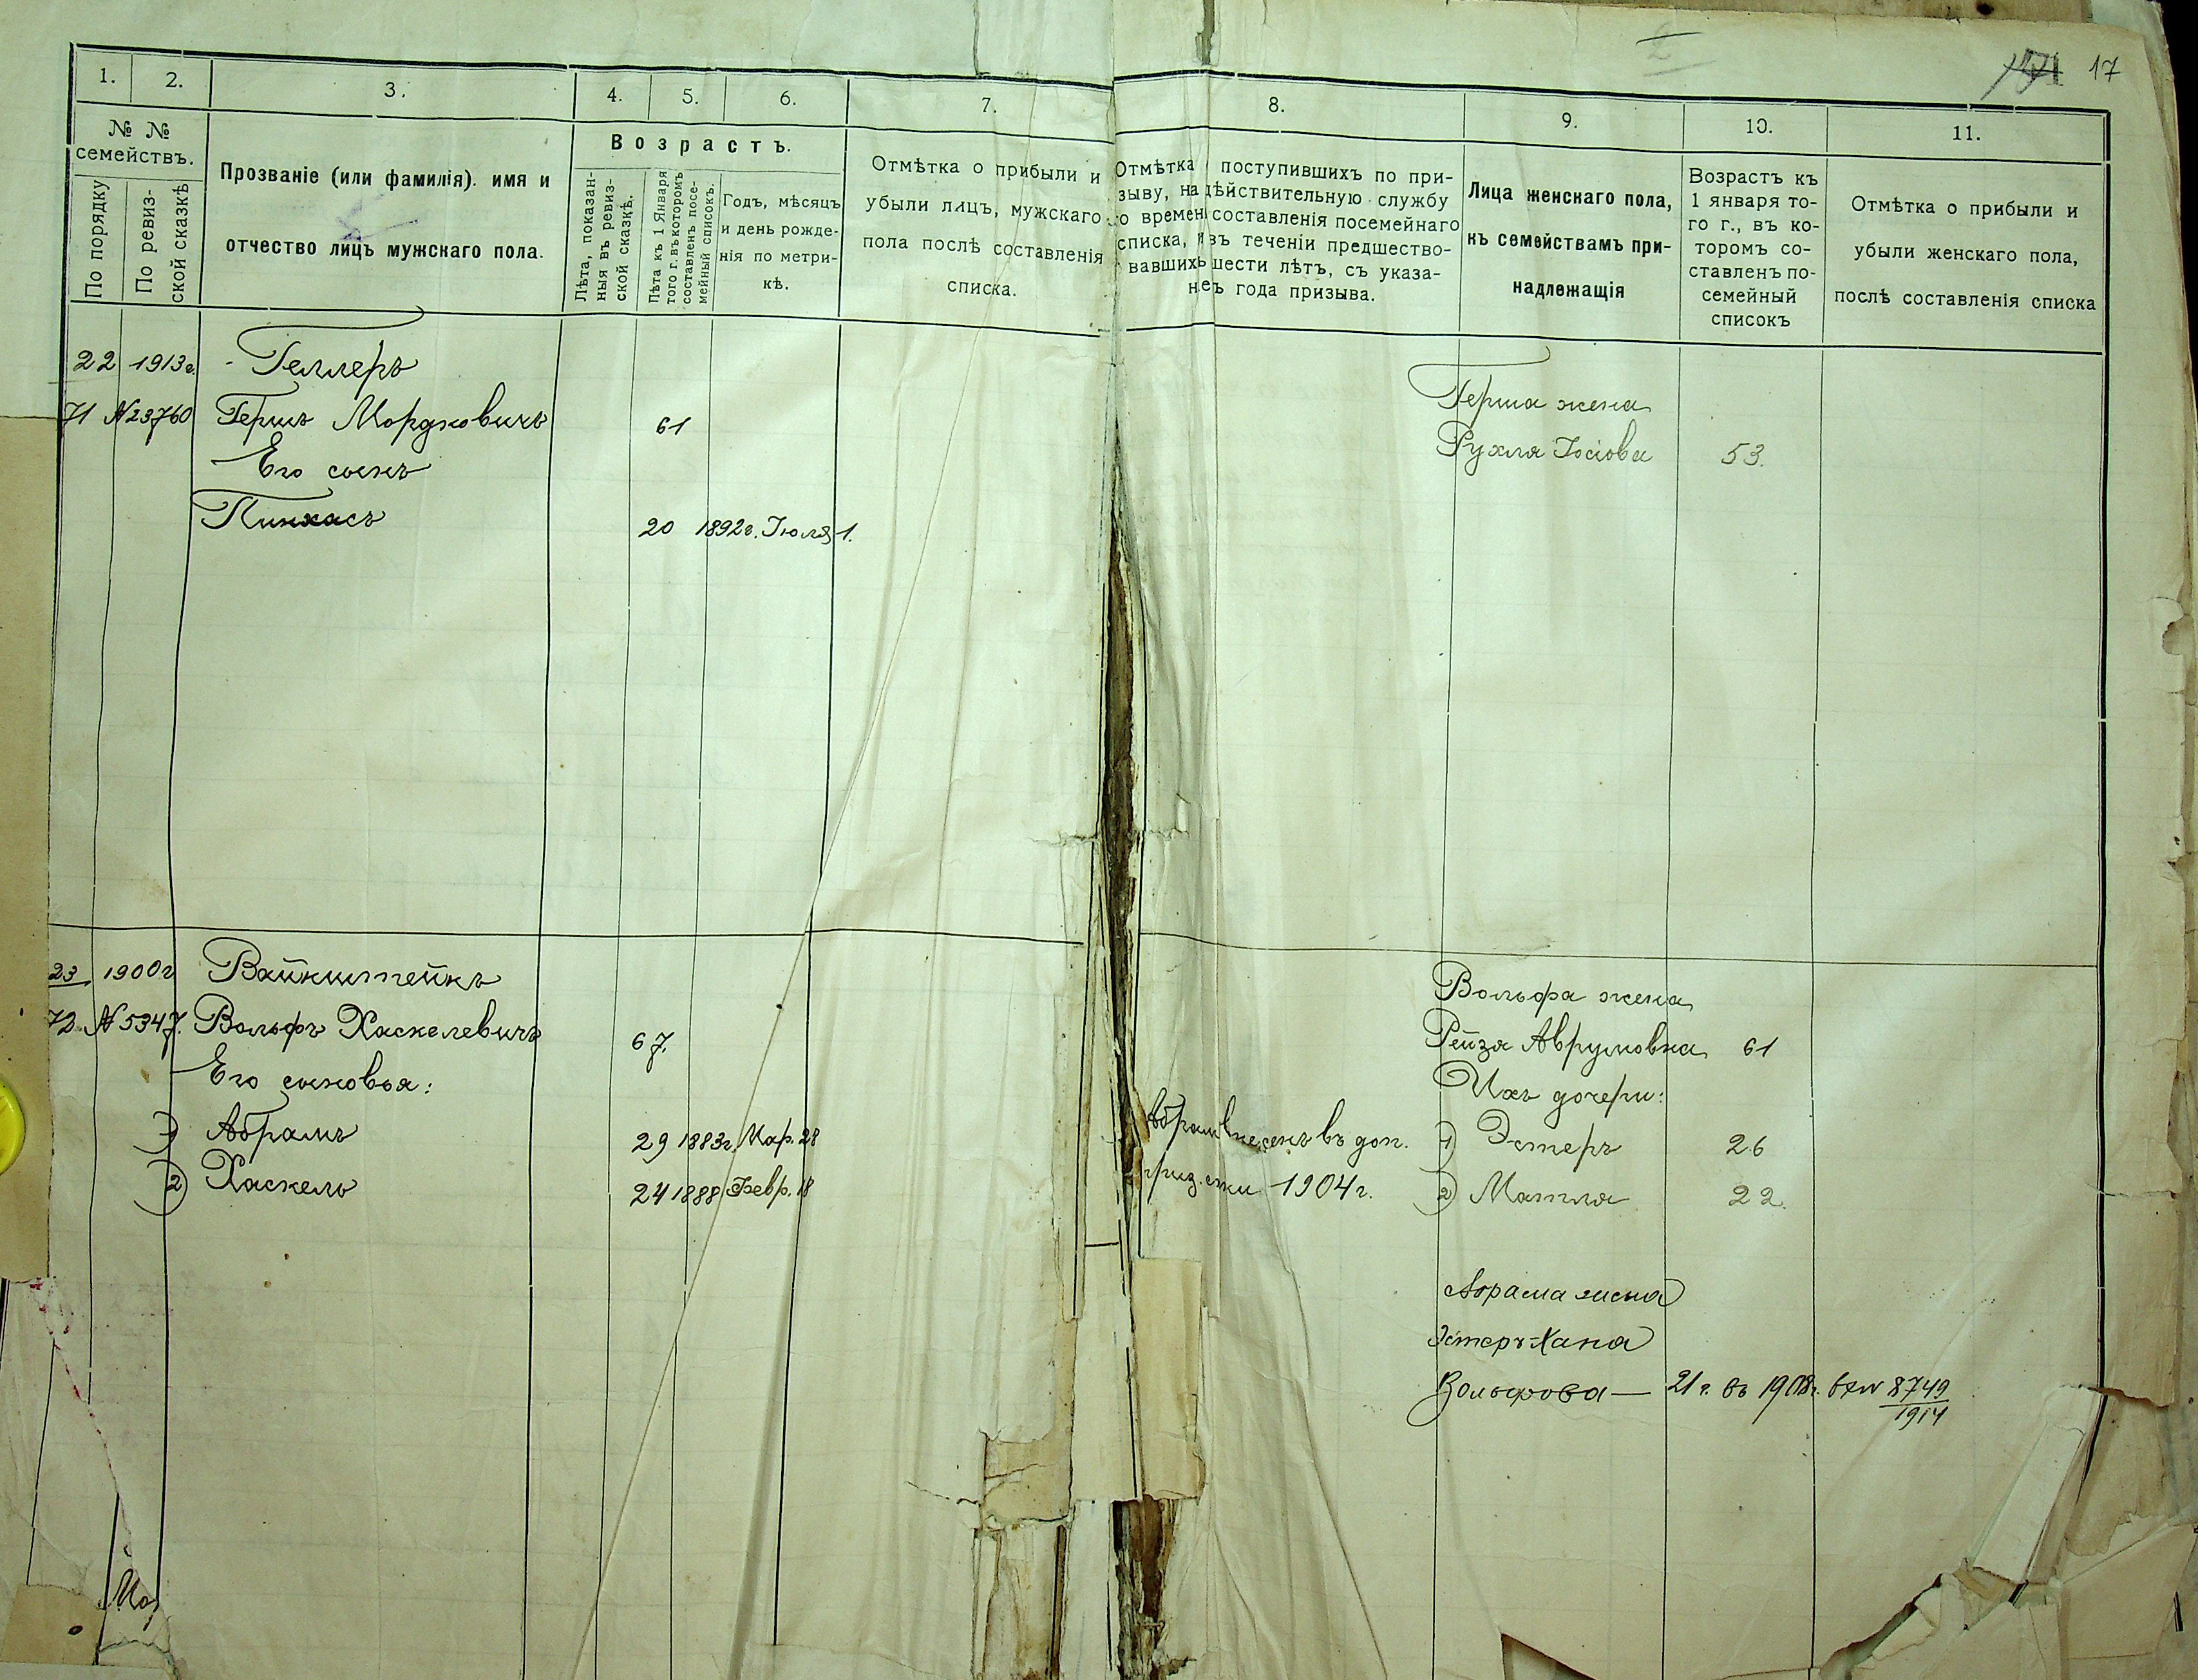 17
1. 2. 3. 4. 5. 6. 7. 8. 9. 10. 11.
№ №
семействъ.
По порядку
По ревиз-
ской сказкѣ
Прозваніе (или фамилія). имя и
отчество лицъ мужскаго пола.
Возрастъ.
Лѣта, показан-
ныя въ ревиз-
ской сказкѣ.
Лѣта къ 1 Января
того г. въ которомъ
составленъ посе-
мейный списокъ.
Годъ, мѣсяцъ
и день рожде-
нія по метри-
кѣ.
Отмѣтка о прибыли и
убыли лицъ, мужскаго
пола послѣ составленія
списка.
Отмѣтка поступившихъ по при-
зыву, на дѣйствительную службу
о времен составленія посемейнаго
списка, въ теченіи предшество-
вавшихъ шести лѣтъ, съ указа-
неъ года призыва.
Лица женскаго пола,
къ семействамъ при-
надлежащія
Возрастъ къ
1 января то-
го г., въ ко-
торомъ со-
ставленъ по-
семейный
списокъ
Отмѣтка о прибыли и
убыли женскаго пола,
послѣ составленія списка
22 1913 г. Геллеръ
71 № 23760 Гершъ Мордковичъ 61
Его сынъ
Пинхасъ 20 1892 г. Іюля 1.
Герша жена
Рухля Іосіова 53.
23 1900 г Вайнштейнъ
72 № 5347. Вольфъ Хаскелевичъ 67.
Его сыновья:
1) Абрамъ 29 1883 г. Мар. 28
2) Хаскель 24 1888 Февр. 18
Абрам внесенъ въ доп.
1904 г.
Вольфа жена
Рейзя Аврумовна 61
Ихъ дочери:
1) Эстеръ 26
2) Матля 22.
Абрама жена
Эстеръ-Хана
Вольфова — 21 г. въ 1908 г. 8749
1914